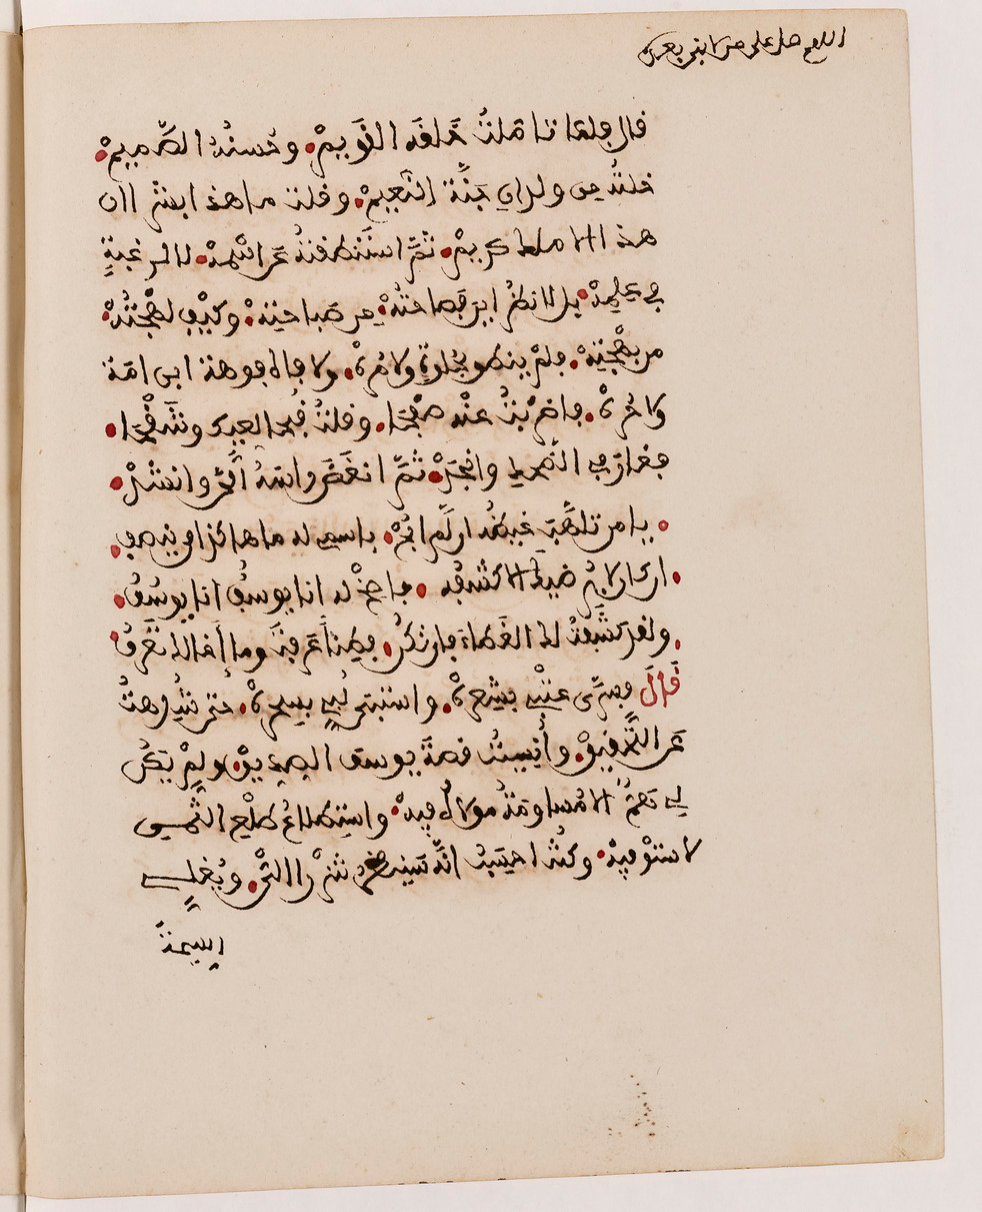 اللهم صل على من لا نبي بعده
قال فلما تاملت خلقه القويم. وحسنه الصميم.
خلته من ولدان جنة النعيم. وقلت ما هذا بشر اان
هذا الا ملك كريم. ثم استنطقته عن اسمه. لا لرغبة
في علمه. بل لانظر اين فصاحته. من صباحته. وكيف لهجته.
من بهجته. فلم ينطق بحلوة ولا مرة. ولا فاه فوهة ابن امة
ولا حرة. فاضربت عنه صفحا. وقلت قبحا لعيك وشقحا.
فغار في الضحك وانجد. ثم انغض راسه الي وانشد.
. يا من تلهب غيظه ان لم ابح. باسمي له ما هاكذا من ينصف.
. ان كان لا يرضيك الا كشفه. فاصخ له انا يوسف انا يوسف.
. ولقد كشفت لك الغطاء فان تكن. فطنا عرفت وما اخالك تعرف.
قال فسرى عتبي بشعره. واستبى لبي بسحره. حتى شدهت
عن التحقيق. وأنسيت قصة يوسف الصديق. ولم يكن
لي هم الا مساومة مولاه فيه. واستطلاع طلع الثمن
لاستوفيه. وكنت احسب انه سينظر شزرا الي. ويغلي
السيمة